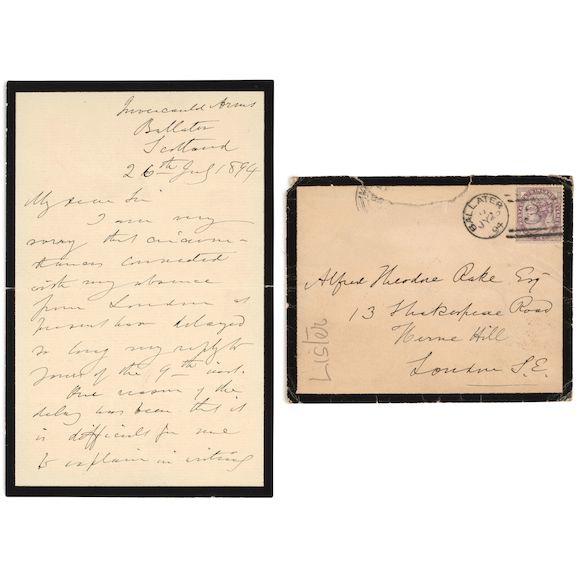 Invercauld Arms
Ballater
Scotland
26th July 1894
My dear Sir
I am very
sorry that circum=
stances connected
with my absence
from London at
present have delayed
so long my reply to
yours of the 9th inst.
One reason of the
delay has been that it
is difficult for me
to explain in writing
BALLATER
JY 26
94
Alfred Theodore Rake Esq
13 Shakespeare Road
Herne Hill
London S.E.
Lister